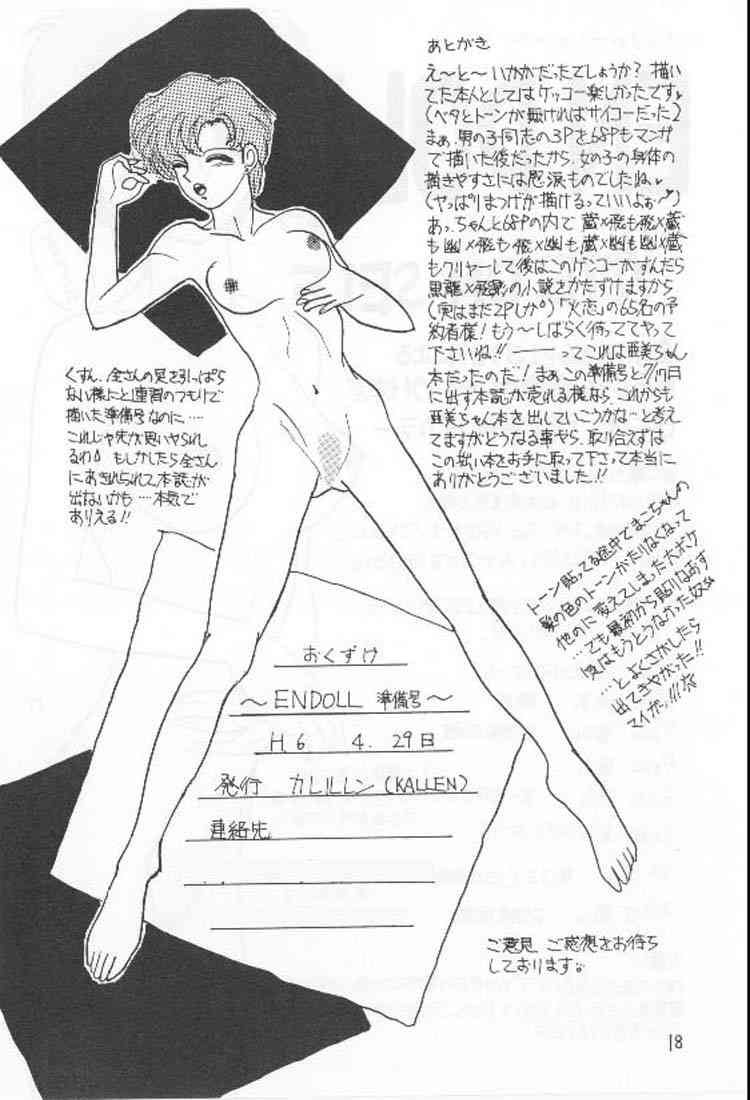 あとがき
え〜と〜いかがだったでしょうか？描い
てた本人としてはケッコー楽しかったです。
(ベタとトーンが無ければサイコーだった)
まぁ、男の子同志の3Pを68Pもマンガ
で描いた後だったから、女の子の身体の
描きやすさには感涙ものでしたね。
(やっぱりまつげが描けるっていいよぉ〜)
あっ、ちゃんと68Pの内で 蔵×飛も飛×蔵
も幽×飛も飛×幽も、蔵×幽も幽×蔵
もクリヤーして後はこのゲンコーがすんだら
の小説をかたずけますから
(実はまだ2Pしか)「火恋」の65名の予
約者様！もう〜しばらく待っててやって
下さいね!!――ってこれは亜美ちゃん
本だったのだ！まぁこの準備号と7/17日
に出す本誌が売れる様なら、これからも
亜美ちゃん本を出していこうかな…と考え
てますがどうなる事やら、取り合えずは
この幼い本をお手に取って下さって本当に
ありがとうございました!!
くすん、全さんの足を引っぱら
ない様にと練習のつもりで
描いた準備号なのに……
これじゃ先が思いやられ
るわ もしかしたら全さん
にあきれられて本誌が
出ないかも…本気で
ありえる!!
トーン貼ってる途中でまこちゃんの
髪の色のトーンがたりなくなって
他のに変えてしまった大ボケ
…でも最初から貼りなおす
気はもうとうなかった奴
…とよくさがしたら
出てきやがった!!
マイガッ!!!☆
おくずけ
〜ENDOLL 準備号〜
H.6 4.29日
発行 カレルレン(KALLEN)
連絡先
ご意見、ご感想をお待ち
しております。
18